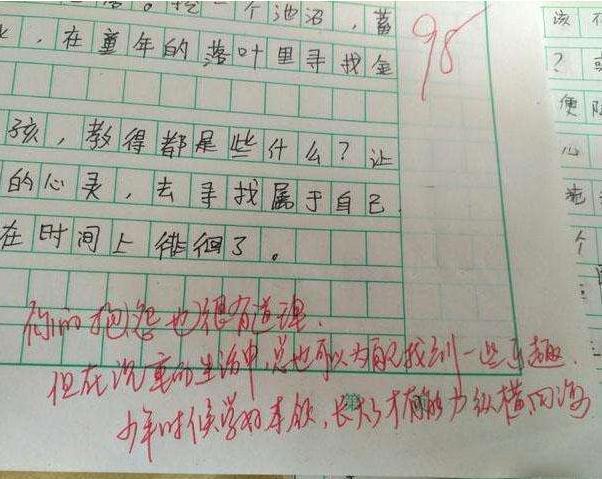 个池沼，蓄
，在童年的落叶里寻找金
98
孩，教得都是些什么？让
的心灵，去寻找属于自己
在时间上徘徊了。
你的抱怨也很有道理.
但在沉重的生活中，总也可以为自己找到一些乐趣.
少年时候学好本领，长大了才有能力纵横四海
该
？
便
心
个